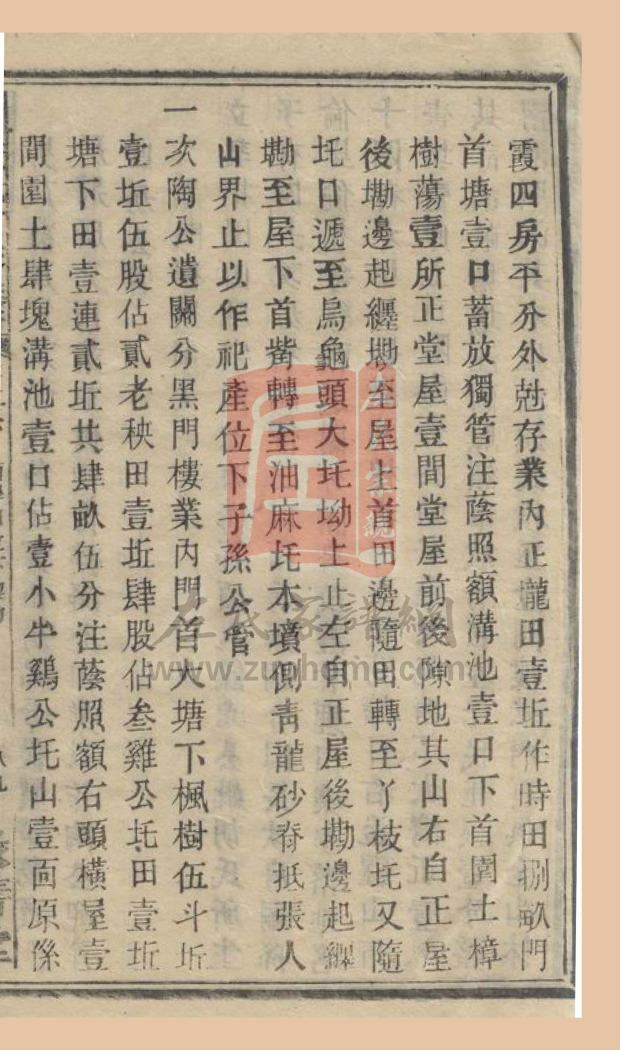 霞四房平分外尅存業內正壠田壹坵作時田捌畝門
首塘壹口蓄放獨管注蔭照額溝池壹口下首園土樟
樹蕩壹所正堂屋壹間堂屋前後隙地其山右自正屋
後墈邊起纒墈至屋上首田邊隨田轉至丫枝圫又隨
圫口遞至烏龜頭大圫坳上止左自正屋後墈邊起纒
墈至屋下首觜轉至油麻圫木墳側青龍砂脊抵張人
山界止以作祀產位下子孫公管
一次陶公遺關分黑門樓業內門首大塘下楓樹伍斗坵
壹坵伍股佔貳老秧田壹坵肆股佔叁雞公圫田壹坵
塘下田壹連貳坵共肆畝伍分注蔭照額右頭橫屋壹
間園土肆塊溝池壹口佔壹小半鷄公圫山壹面原係
左氏家譜網
www.zuohome.com